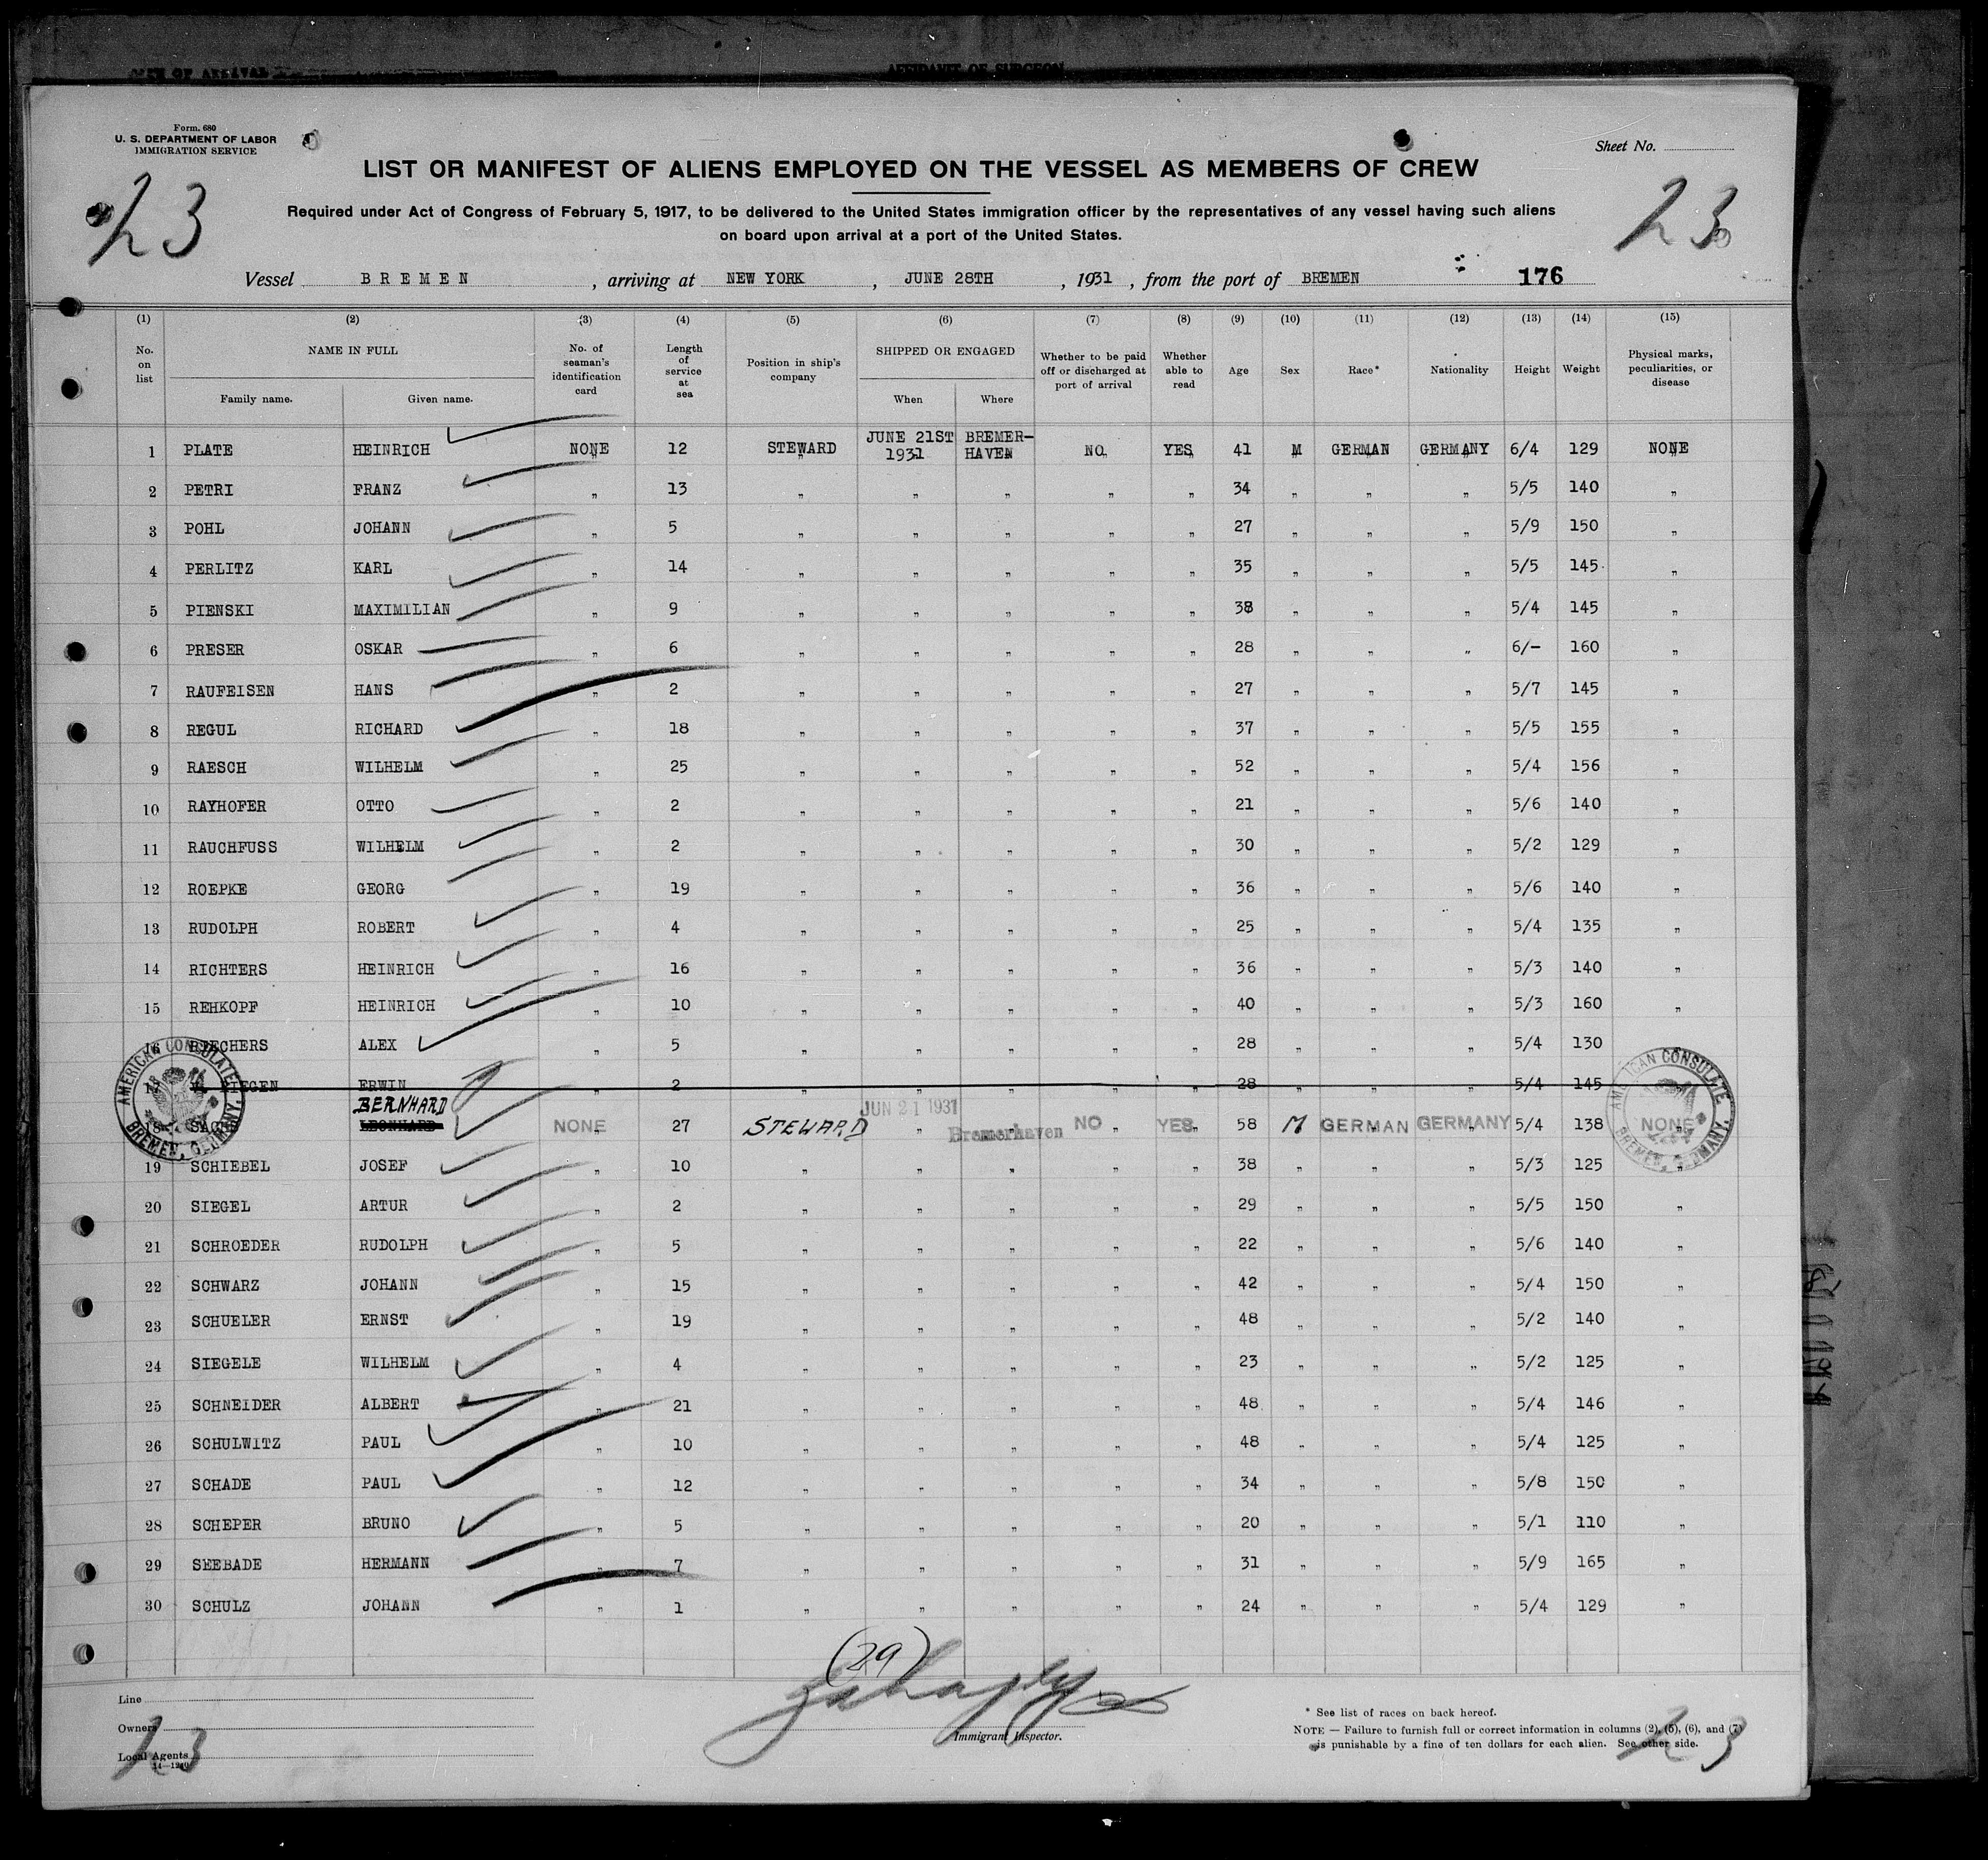 AFFIDAVIT OF SURGEON
Form. 680
U. S. DEPARTMENT OF LABOR
IMMIGRATION SERVICE
Sheet No.
LIST OR MANIFEST OF ALIENS EMPLOYED ON THE VESSEL AS MEMBERS OF CREW
23
23
Required under Act of Congress of February 5, 1917, to be delivered to the United States immigration officer by the representatives of any vessel having such aliens
on board upon arrival at a port of the United States.
Vessel BREMEN , arriving at NEW YORK , JUNE 28TH , 1931 , from the port of BREMEN 176
(1) (2) (3) (4) (5) (6) (7) (8) (9) (10) (11) (12) (13) (14) (15)
No. on list NAME IN FULL Family name. Given name. No. of seaman's identification card Length of service at sea Position in ship's company SHIPPED OR ENGAGED When Where Whether to be paid off or discharged at port of arrival Whether able to read Age Sex Race* Nationality Height Weight Physical marks, peculiarities, or disease
1 PLATE HEINRICH NONE 12 STEWARD JUNE 21ST 1931 BREMER-HAVEN NO YES 41 M GERMAN GERMANY 6/4 129 NONE
2 PETRI FRANZ " 13 " " " " " 34 " " " 5/5 140 "
3 POHL JOHANN " 5 " " " " " 27 " " " 5/9 150 "
4 PERLITZ KARL " 14 " " " " " 35 " " " 5/5 145 "
5 PIENSKI MAXIMILIAN " 9 " " " " " 38 " " " 5/4 145 "
6 PRESER OSKAR " 6 " " " " " 28 " " " 6/- 160 "
7 RAUFEISEN HANS " 2 " " " " " 27 " " " 5/7 145 "
8 REGUL RICHARD " 18 " " " " " 37 " " " 5/5 155 "
9 RAESCH WILHELM " 25 " " " " " 52 " " " 5/4 156 "
10 RAYHOFER OTTO " 2 " " " " " 21 " " " 5/6 140 "
11 RAUCHFUSS WILHELM " 2 " " " " " 30 " " " 5/2 129 "
12 ROEPKE GEORG " 19 " " " " " 36 " " " 5/6 140 "
13 RUDOLPH ROBERT " 4 " " " " " 25 " " " 5/4 135 "
14 RICHTERS HEINRICH " 16 " " " " " 36 " " " 5/3 140 "
15 REHKOPF HEINRICH " 10 " " " " " 40 " " " 5/3 160 "
16 ALEX " 5 " " " " " 28 " " " 5/4 130
17 ERWIN " 2 " " " " " 28 " " " 5/4 145
BERNHARD
18 LEONHARD NONE 27 STEWARD JUN 21 1931 Bremerhaven NO YES 58 M GERMAN GERMANY 5/4 138 NONE
AMERICAN CONSULATE, BREMEN, GERMANY.
AMERICAN CONSULATE BREMEN, GERMANY.
19 SCHIEBEL JOSEF " 10 " " " " " 38 " " " 5/3 125 "
20 SIEGEL ARTUR " 2 " " " " " 29 " " " 5/5 150 "
21 SCHROEDER RUDOLPH " 5 " " " " " 22 " " " 5/6 140 "
22 SCHWARZ JOHANN " 15 " " " " " 42 " " " 5/4 150 "
23 SCHUELER ERNST " 19 " " " " " 48 " " " 5/2 140 "
24 SIEGELE WILHELM " 4 " " " " " 23 " " " 5/2 125 "
25 SCHNEIDER ALBERT " 21 " " " " " 48 " " " 5/4 146 "
26 SCHULWITZ PAUL " 10 " " " " " 48 " " " 5/4 125 "
27 SCHADE PAUL " 12 " " " " " 34 " " " 5/8 150 "
28 SCHEPER BRUNO " 5 " " " " " 20 " " " 5/1 110 "
29 SEEBADE HERMANN " 7 " " " " " 31 " " " 5/9 165 "
30 SCHULZ JOHANN " 1 " " " " " 24 " " " 5/4 129 "
(29)
Line
Owners
Local Agents
14—1240
23
Immigrant Inspector.
* See list of races on back hereof.
NOTE — Failure to furnish full or correct information in columns (2), (5), (6), and (7)
is punishable by a fine of ten dollars for each alien. See other side.
23